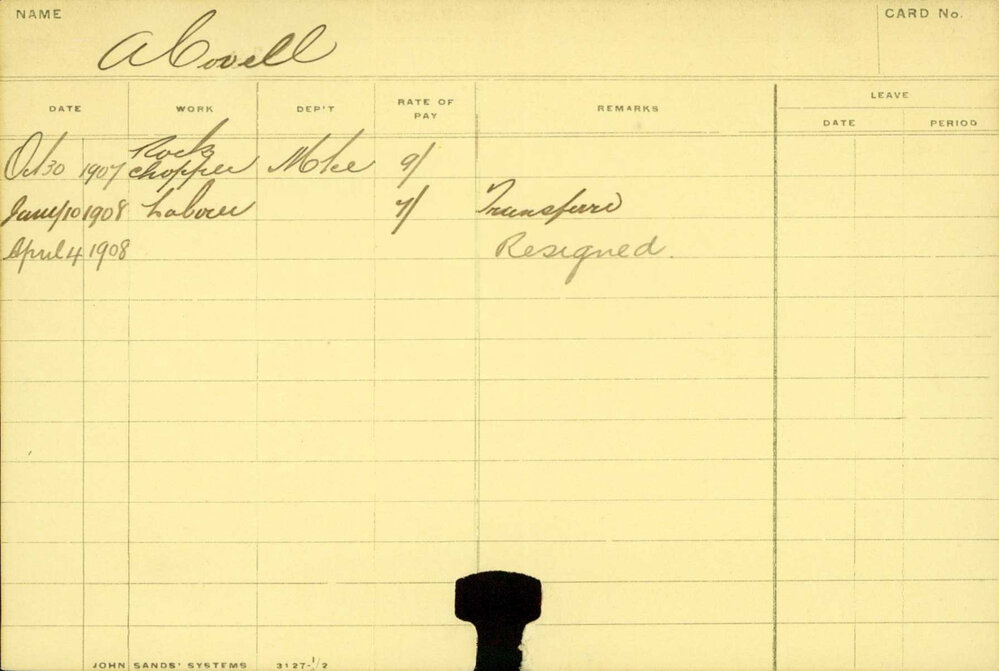 NAME
CARD No.
A Covell
DATE WORK DEP'T RATE OF PAY REMARKS LEAVE
DATE PERIOD
Oct 30 1907 Rock chopper 9/
Jany 10 1908 Labourer 7/ Transferred
April 4 1908 Resigned.
JOHN SANDS' SYSTEMS 3127-1/2